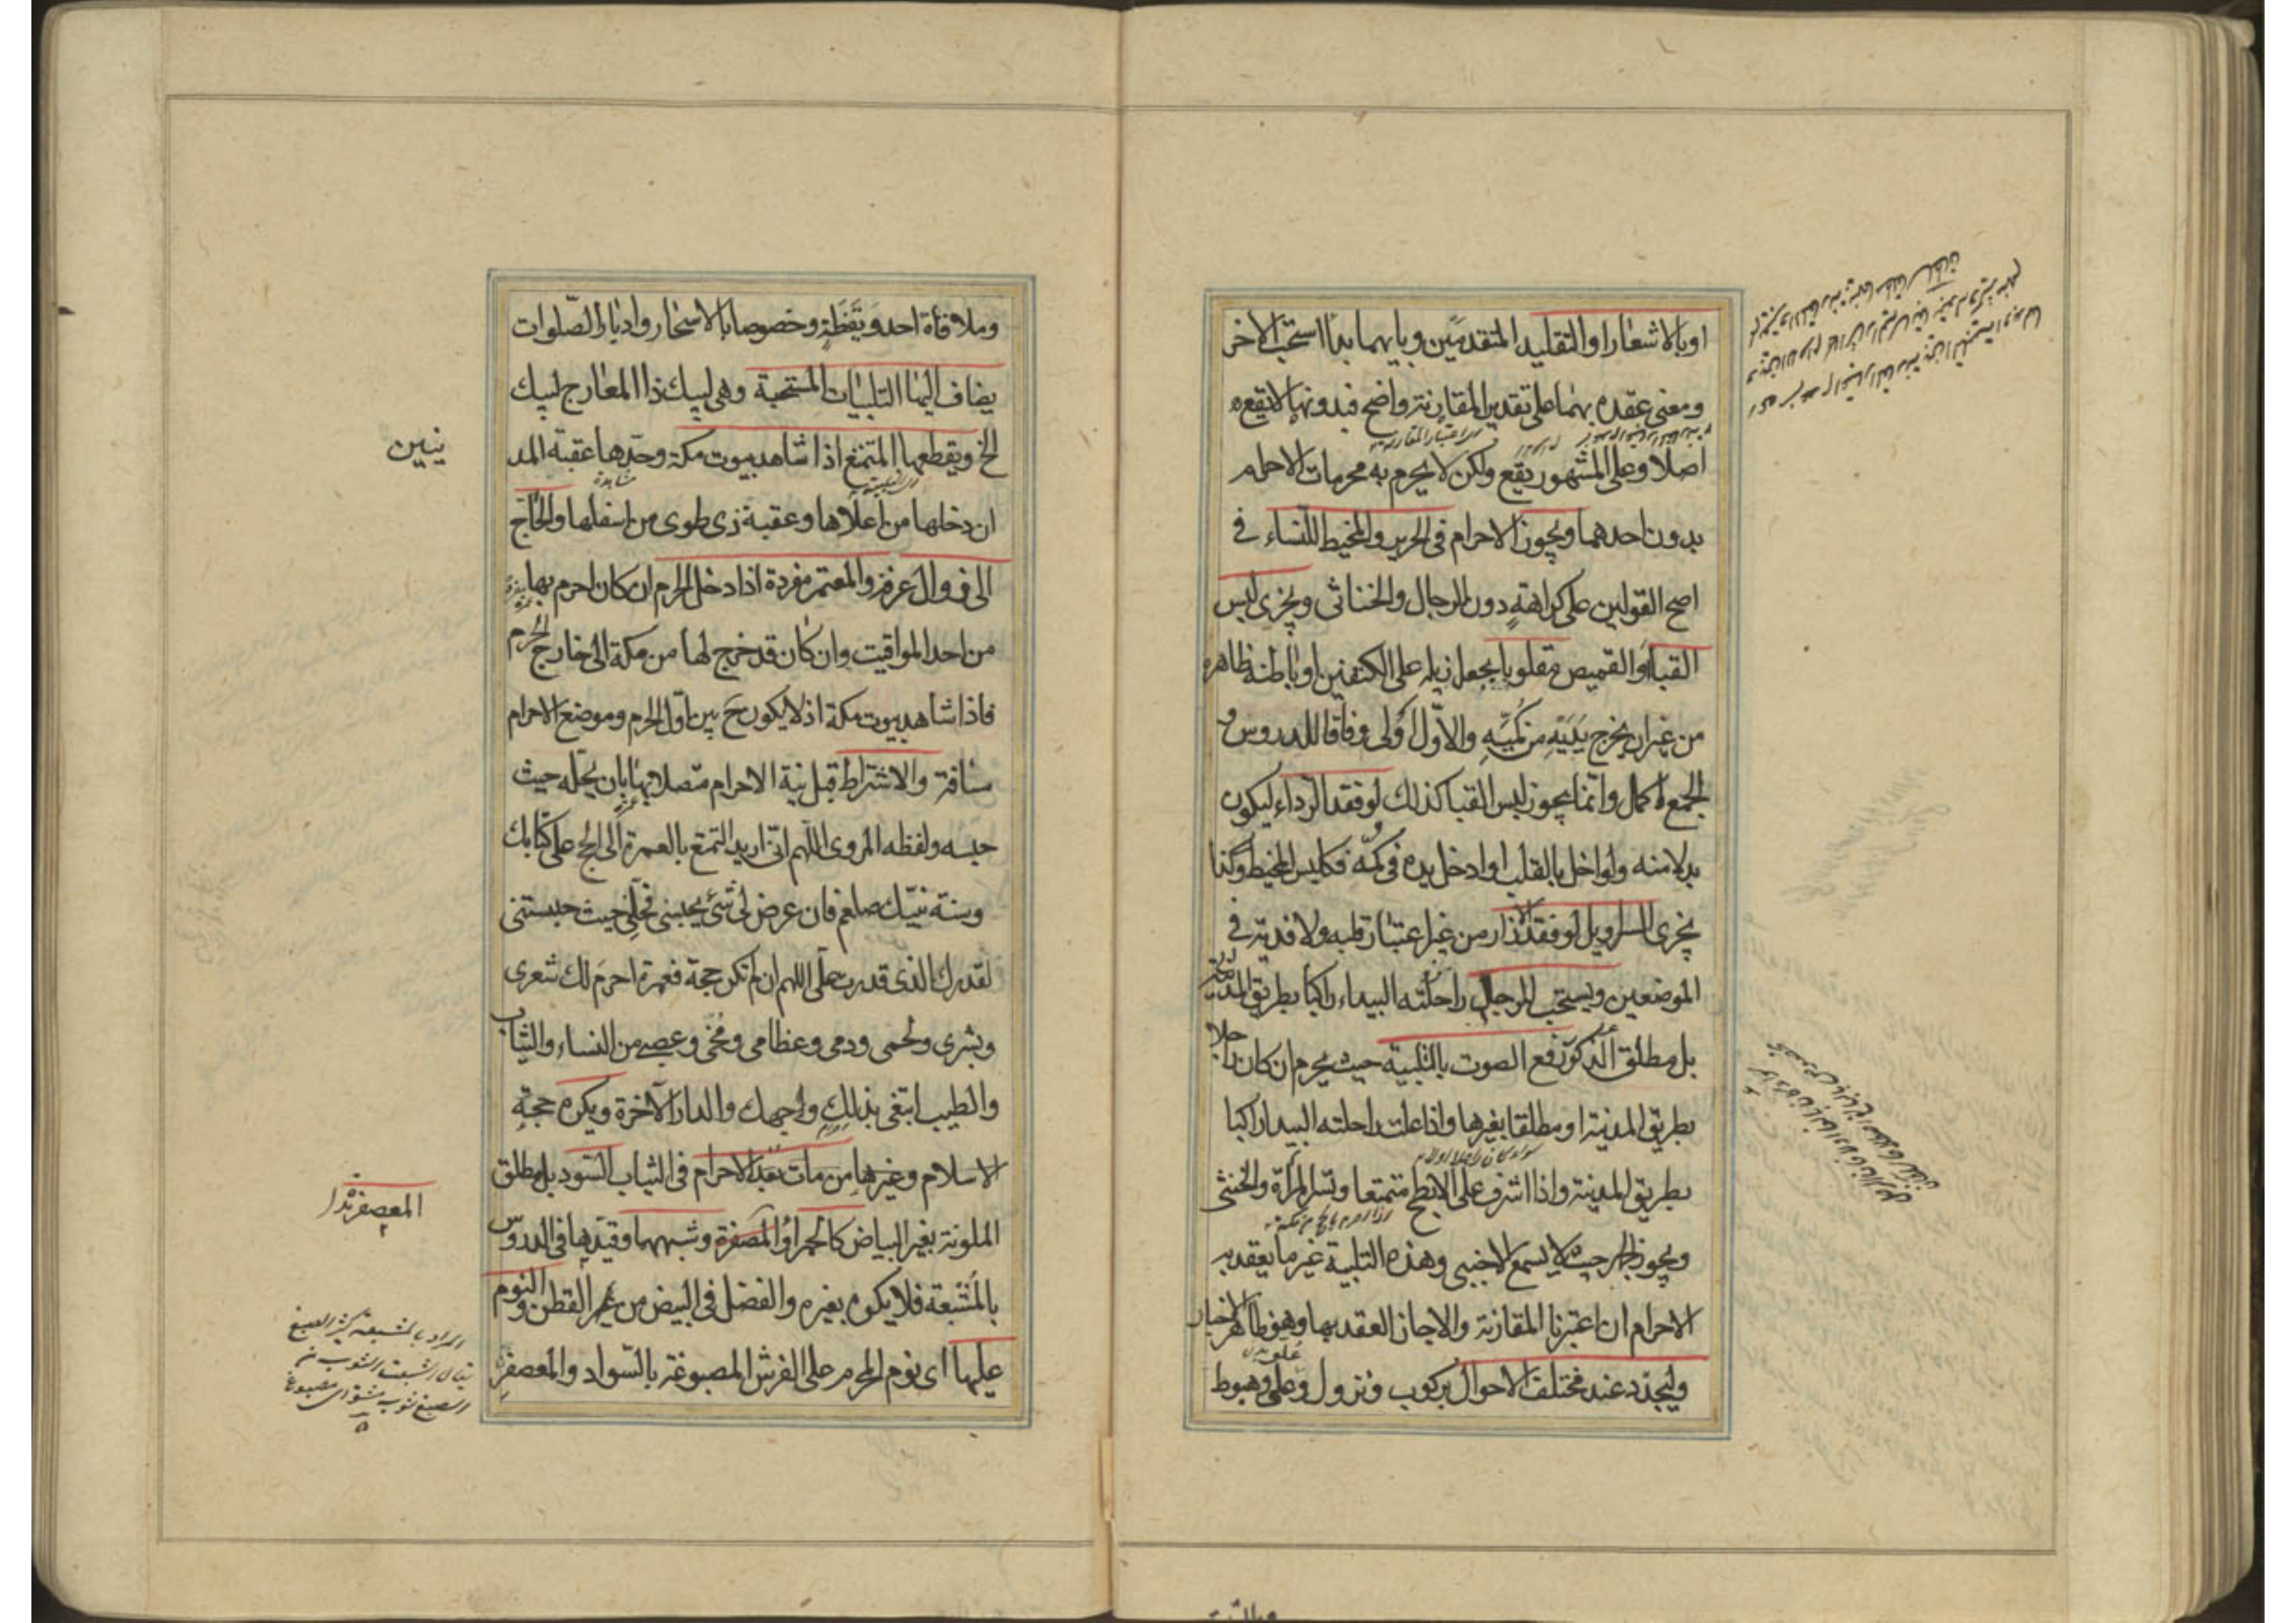 او بالاشعار او التقليد المتقدمين وبايهما بدأ استحب الاخر
ومعنى عقده بهما على تقدير المقارنة واضح فبدونها لا يقع
اصلا وعلى المشهور يقع ولكن لا يحرم به محرمات الاحرام
بدون احدهما ويجوز الاحرام فى الحرير والمخيط للنساء فى
اصح القولين على كراهة دون الرجال والخناثى ويجزى لبس
القباء او القميص مقلوبا بجعل ذيله على الكتفين او باطنه ظاهره
من غير ان يخرج يديه من كميه والاول اولى وفاقا للدروس و
الجمع اكمل وانما يجوز لبس القبا كذلك لو فقد الرداء ليكون
بدلا منه ولو اخل بالقلب او ادخل يده فى كمه فكلبس المخيط وكذا
يجزى السراويل لو فقد الازار من غير اعتبار قلبه ولا فدية فى
الموضعين ويستحب للرجل راحلته البيداء راكبا بطريق المدينة
بل مطلق الذكر رفع الصوت بالتلبية حيث يحرم ان كان راجلا
بطريق المدينة او مطلقا بغيرها واذا علت راحلته البيداء راكبا
سواء كان راجلا او راكبا
بطريق المدينة واذا اشرف على الابطح متمتعا وتسر المراة والخنثى
اذا احرم بالحج من مكة
ويجوز الجهر حيث لا يسمع الاجنبى وهذه التلبية غير ما يعقد به
الاحرام ان اعتبرنا المقارنة والا جاز العقد بها وهو ظاهر الاخبار
وليجدد عند مختلف الاحوال بركوب ونزول وعلو وهبوط
وملاقاة احد ويقظة وخصوصا بالاسحار وادبار الصلوات
يضاف اليها التلبيات المستحبة وهى لبيك ذا المعارج لبيك
الخ ويقطعها المتمتع اذا شاهد بيوت مكة وحدها عقبة المد
نيين
ان دخلها من اعلاها وعقبة ذى طوى من اسفلها والحاج
الى زوال عرفة والمعتمر مفردة اذا دخل الحرم ان كان احرم بها
من احد المواقيت وان كان قد خرج لها من مكة الى خارج الحرم
فاذا شاهد بيوت مكة اذ لا يكون ح بين اول الحرم وموضع الاحرام
مسافة والاشتراط قبل نية الاحرام متصلا بها بان يحله حيث
حبسه ولفظه المروى اللهم انى اريد التمتع بالعمرة الى الحج على كتابك
وسنة نبيك صلعم فان عرض لى شئ يحبسنى فحلنى حيث حبستنى
لقدرك الذى قدرت على اللهم ان لم تكن حجة فعمرة احرم لك شعرى
وبشرى ولحمى ودمى وعظامى ومخى وعصبى من النساء والثياب
والطيب ابتغى بذلك وجهك والدار الآخرة ويكره حجة
الاسلام وغيرها من مات بعد الاحرام فى الثياب السود بل مطلق
الملونة بغير البياض كالحمراء او المعصفرة وشبههما وقيدها فى الدروس
المعصفرة
بالمشبعة فلا يكره بغيره والفضل فى البيض من غير القطن والنوم
عليها اى نوم المحرم على الفرش المصبوغة بالسواد والمعصفرة
المراد بالمشبعة كثير الصبغ
يقال اشبعت الثوب من
الصبغ ثوب مشبع اى مصبوغ